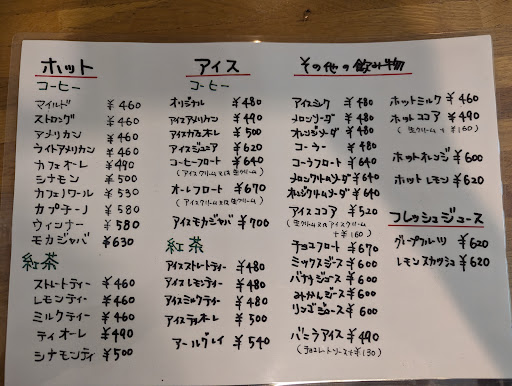 ホット
コーヒー
マイルド ¥460
ストロング ¥460
アメリカン ¥460
ライトアメリカン ¥460
カフェオーレ ¥490
シナモン ¥500
カフェノワール ¥530
カプチーノ ¥580
ウィンナー ¥580
モカジャバ ¥630
紅茶
ストレートティー ¥460
レモンティー ¥460
ミルクティー ¥460
ティオーレ ¥490
シナモンティ ¥500
アイス
コーヒー
オリジナル ¥480
アイスアメリカン ¥490
アイスカフェオーレ ¥500
アイスジュニア ¥620
コーヒーフロート ¥640
(アイスクリーム又は生クリーム)
オーレフロート ¥670
(アイスクリーム又は生クリーム)
アイスモカジャバ ¥700
紅茶
アイスストレートティー ¥480
アイスレモンティー ¥480
アイスミルクティー ¥480
アイスティオーレ ¥500
アールグレイ ¥540
その他の飲み物
アイスミルク ¥480
メロンソーダ ¥480
オレンジソーダ ¥480
コーラー ¥480
コーラフロート ¥640
メロンクリームソーダ ¥640
オレンジクリームソーダ ¥640
アイスココア ¥520
(生クリーム又はアイスクリーム
+¥160)
チョコフロート ¥670
ミックスジュース ¥600
バナナジュース ¥600
みかんジュース ¥600
リンゴジュース ¥600
バニラアイス ¥490
(チョコレートソース+¥130)
ホットミルク ¥460
ホットココア ¥490
(生クリーム+¥160)
ホットオレンジ ¥600
ホットレモン ¥620
フレッシュジュース
グレープフルーツ ¥620
レモンスカッシュ ¥620